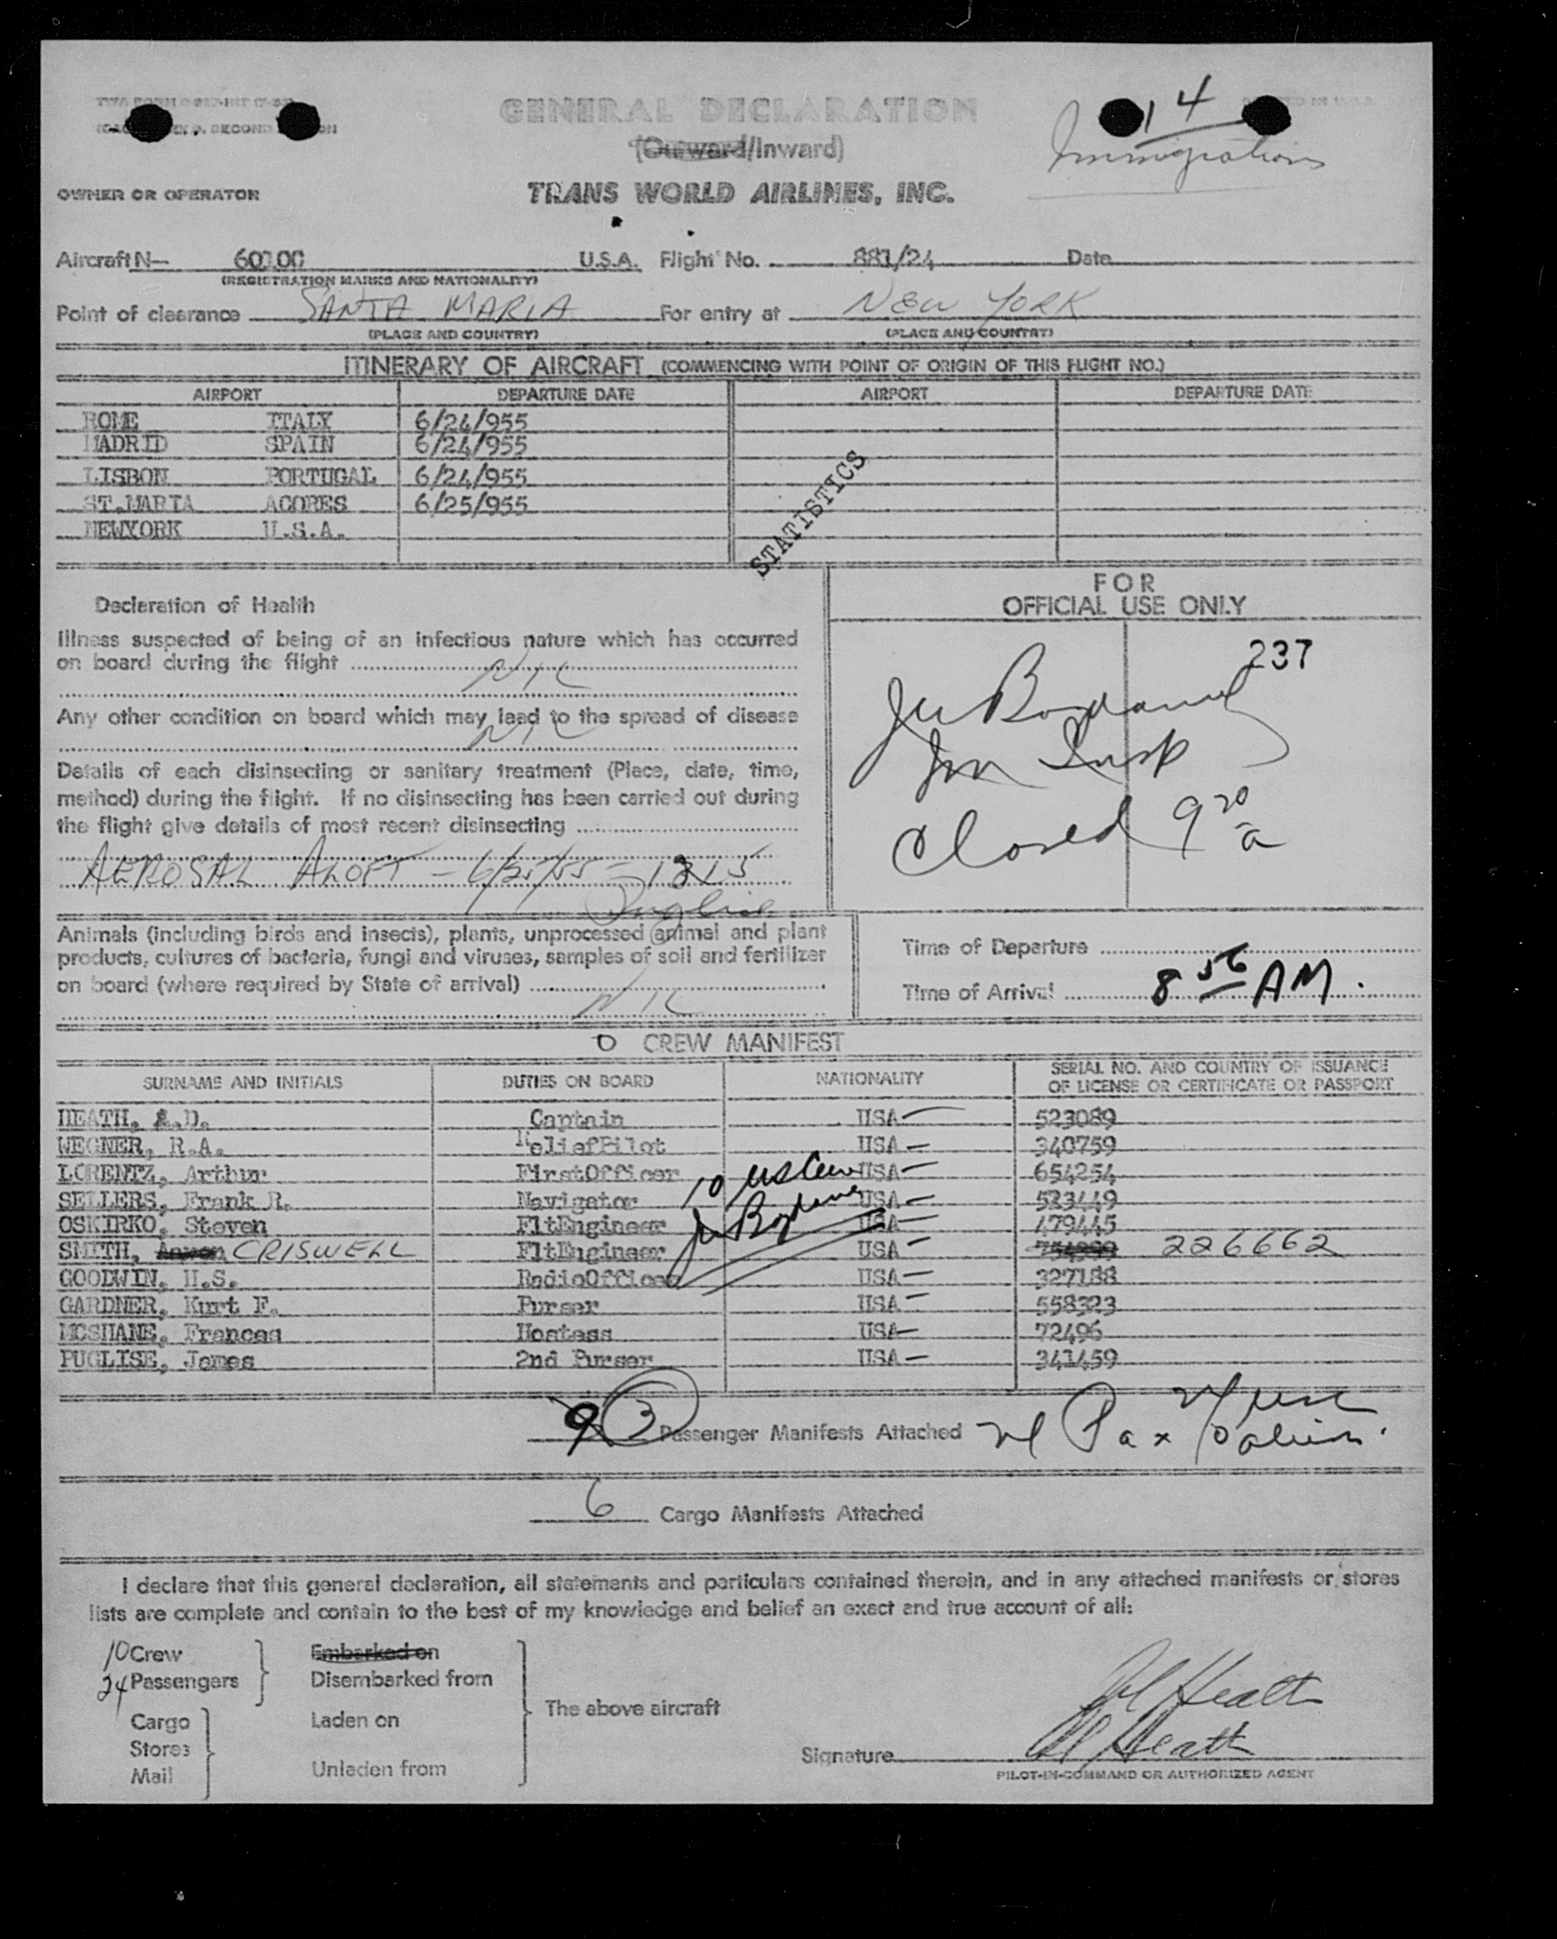 14
Immigration
GENERAL DECLARATION
(Outward/Inward)
OWNER OR OPERATOR TRANS WORLD AIRLINES, INC.
Aircraft N— U.S.A. Flight No. 881/24 Date
(REGISTRATION MARKS AND NATIONALITY)
Point of clearance SANTA MARIA For entry at NEW YORK
(PLACE AND COUNTRY) (PLACE AND COUNTRY)
ITINERARY OF AIRCRAFT (COMMENCING WITH POINT OF ORIGIN OF THIS FLIGHT NO.)
AIRPORT DEPARTURE DATE AIRPORT DEPARTURE DATE
ROME ITALY 6/24/955
MADRID SPAIN 6/24/955
LISBON PORTUGAL 6/24/955
ST.MARIA ACORES 6/25/955
NEWYORK U.S.A.
STATISTICS
Declaration of Health
Illness suspected of being of an infectious nature which has occurred
on board during the flight NIL
Any other condition on board which may lead to the spread of disease
NIL
Details of each disinsecting or sanitary treatment (Place, date, time,
method) during the flight. If no disinsecting has been carried out during
the flight give details of most recent disinsecting
AEROSAL ALOFT – 6/25/55 – 1215
Puglise
FOR
OFFICIAL USE ONLY
237
Im Insp
Closed 9 20 a
Animals (including birds and insects), plants, unprocessed animal and plant
products, cultures of bacteria, fungi and viruses, samples of soil and fertilizer
on board (where required by State of arrival)
NIL
Time of Departure
Time of Arrival 8 56 AM.
CREW MANIFEST
SURNAME AND INITIALS DUTIES ON BOARD NATIONALITY SERIAL NO. AND COUNTRY OF ISSUANCE
OF LICENSE OR CERTIFICATE OR PASSPORT
HEATH, A.D. Captain USA 523089
WEGNER, R.A. ReliefPilot USA 340759
LORENTZ, Arthur FirstOfficer USA 654254
SELLERS, Frank R. Navigator USA 523449
OSKIRKO, Steven FltEngineer USA 479445
SMITH, CRISWELL FltEngineer USA 226662
GOODWIN, H.S. RadioOfficer USA 327188
GARDNER, Kurt F. Purser USA 558323
MCSHANE, Frances Hostess USA 72496
PUGLISE, James 2nd Purser USA 341459
9 3 Passenger Manifests Attached
6 Cargo Manifests Attached
I declare that this general declaration, all statements and particulars contained therein, and in any attached manifests or stores
lists are complete and contain to the best of my knowledge and belief an exact and true account of all:
10 Crew Embarked on
24 Passengers Disembarked from
The above aircraft
Cargo Laden on
Stores
Mail Unladen from
Signature
PILOT-IN-COMMAND OR AUTHORIZED AGENT